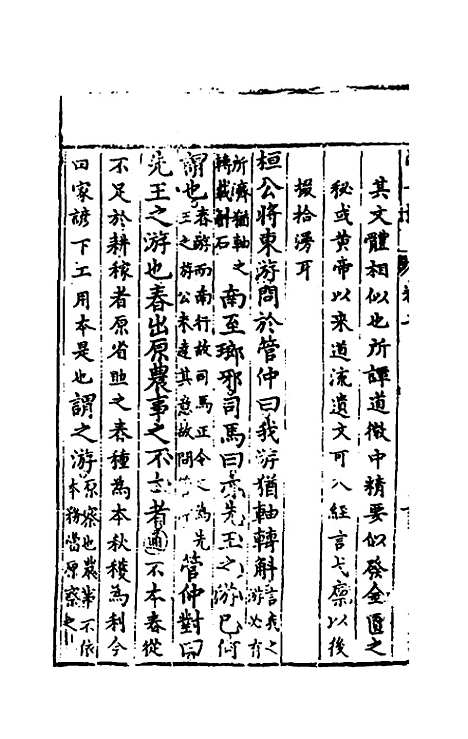 其文體相似也所譚道微中精要似發金匱之
秘或黄帝以來道流遺文可入經言以後
掇拾耳
桓公將東游問於管仲曰我游猶軸轉斛言我之游必有
所濟猶軸之轉載斛石南至瑯邪司馬曰亦先王之游已何
謂也春游而南行故司馬正令之為先王之游公未達其意故問管仲對曰
先王之游也春出原農事之不本者通不本春從
不足於耕稼者原省助之春種為本秋稜為利今
田家諺下工用本是也謂之游原察也農事不依本務當原察之